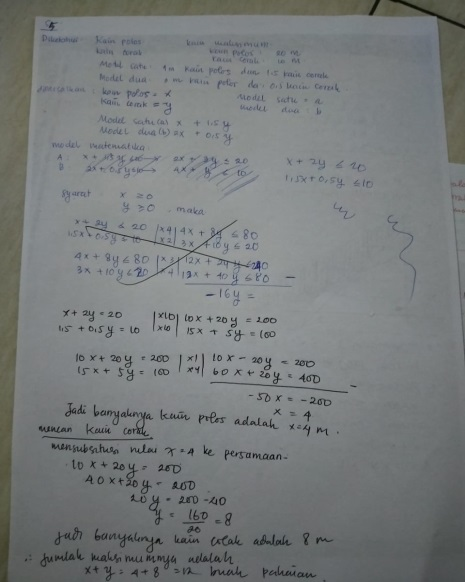 5
Diketahui: Kain polos kain maksimum:
kain corak kain polos: 20 m
kain corak: 10 m
Model satu: 1 m kain polos dan 1.5 kain corak
Model dua: 2 m kain polos dan 0.5 kain corak
kain polos = x model satu = a
kain corak = y model dua : b
Model satu (a) x + 1.5y
Model dua (b) 2x + 0.5y
model matematika
x + 2y ≤ 20
1,5x + 0,5y ≤ 10
Syarat x ≥ 0
y ≥ 0 , maka
x + 2y ≤ 20 |x4| 4x + 8y ≤ 80
1.5x + 0.5y = 10 |x2| 3x + 10y ≤ 20
4x + 8y ≤ 80 |x3| 12x + 24y ≤ 240
3x + 10y ≤ 20 |x4| 12x + 40y ≤ 80 -
-16y =
x + 2y = 20 |x10| 10x + 20y = 200
1,5 + 0,5y = 10 |x10| 15x + 5y = 100
10x + 20y = 200 |x1| 10x - 20y = 200
15x + 5y = 100 |x4| 60x + 20y = 400 -
-50x = -200
x = 4
Jadi banyaknya kain polos adalah x = 4 m.
mencari kain corak
mensubstitusi nilai x = 4 ke persamaan-
10x + 20y = 200
40x + 20y = 200
20y = 200 - 40
y = 160/20 = 8
Jadi banyaknya kain corak adalah 8 m
∴ Jumlah maksimumnya adalah
x + y = 4 + 8 = 12 buah pakaian